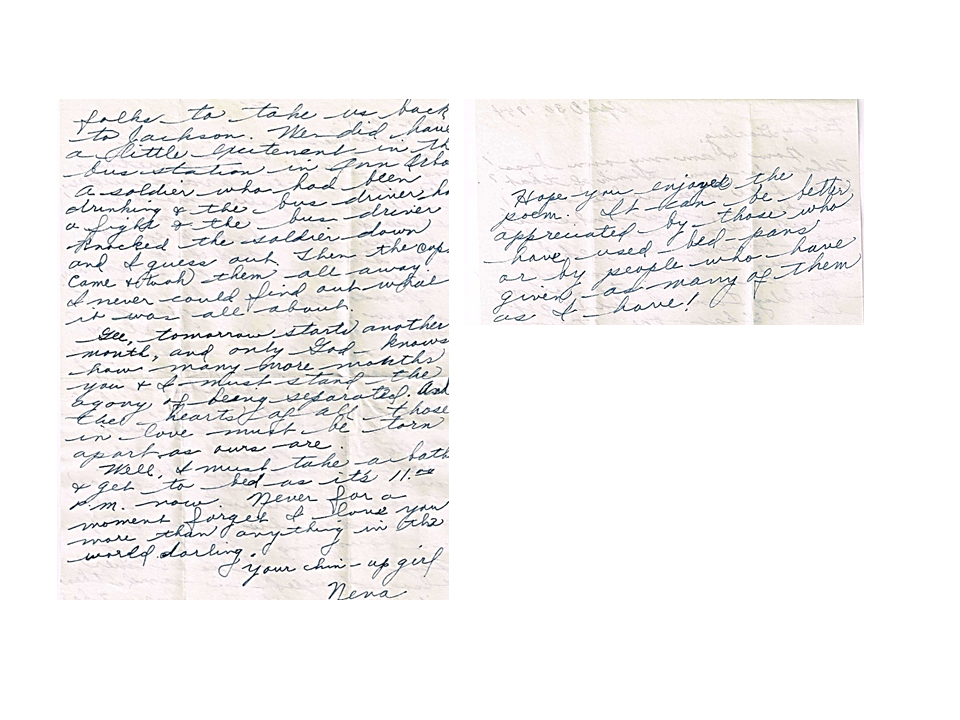 folks to take us back
to Jackson. We did have
a little exeitement in th
bus station in Ann Arbo
A soldier who had been
drinking & the bus driver ha
a fight & the bus driver
knocked the soldier down
and I guess out. Then the cops
came & took them all away.
I never could find out what
it was all about.
Gee, tomorrow starts another
month, and only God knows
how many more months
you & I must stand the
agony of being separated. And
the hearts of all those
in love must be torn
apart as ours are.
Well, I must take a bath
& get to bed as it's 11:00
P.M. now. Never for a
moment forget I love you
more than anything in the
world darling.
Your chin-up girl
Nena
Hope you enjoyed the
poem. It kan be better
appreciated by those who
have used bed-pans
or by people who have
given as many of them
as I have!